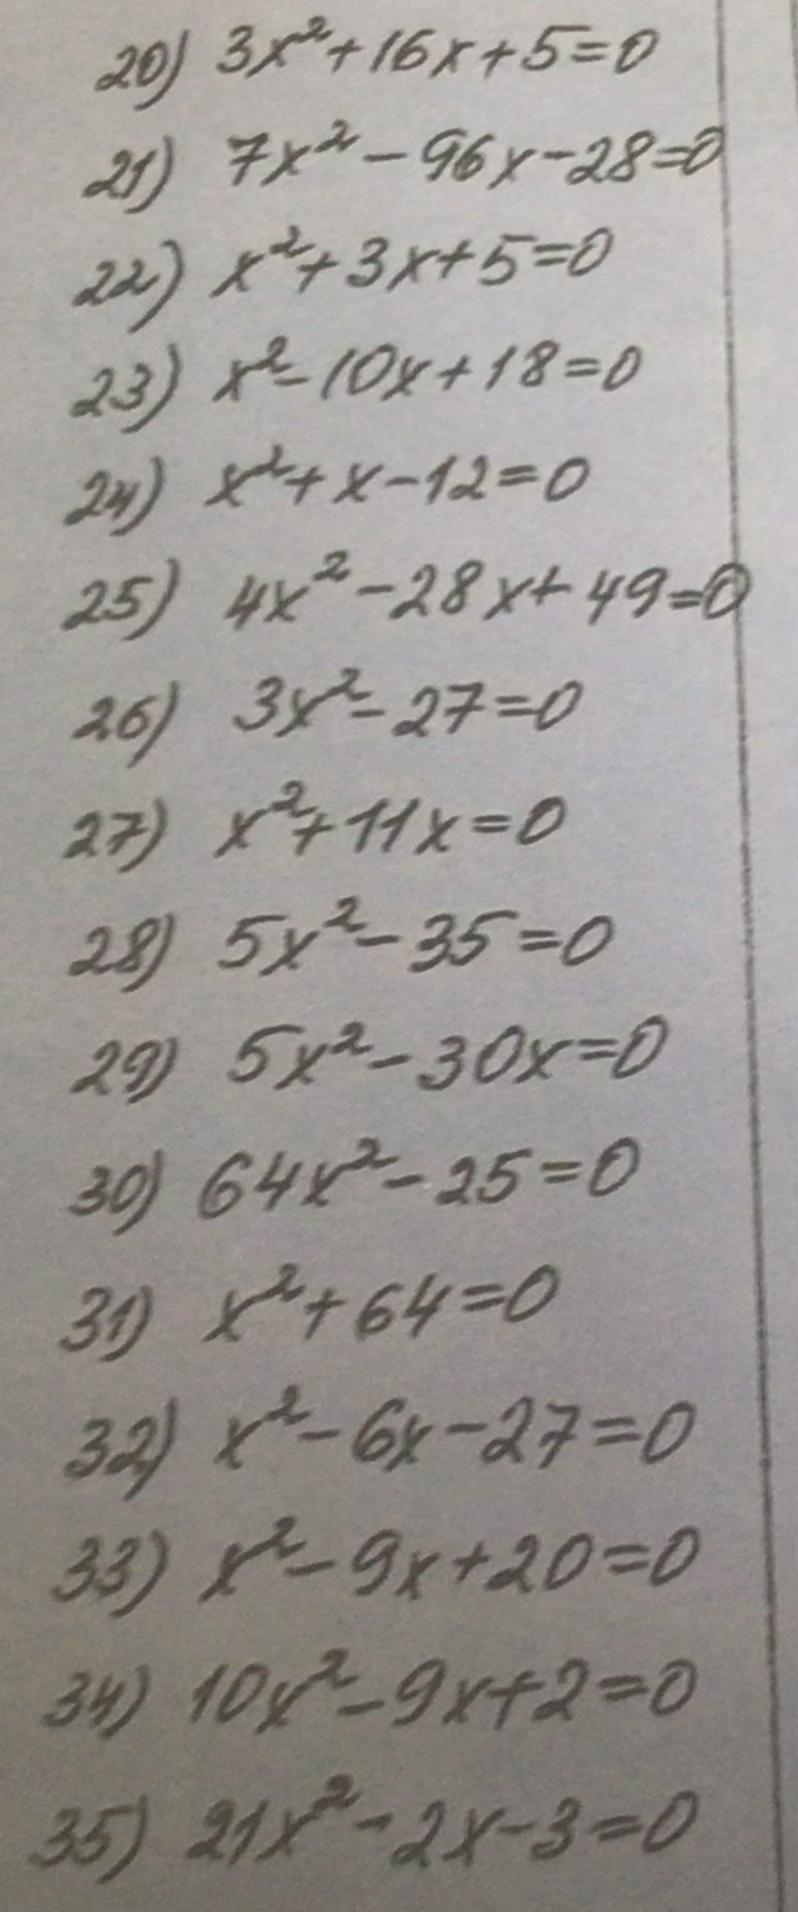 20) 3x²+16x+5=0
21) 7x²-96x-28=0
22) x²+3x+5=0
23) x²-10x+18=0
24) x²+x-12=0
25) 4x²-28x+49=0
26) 3x²-27=0
27) x²+11x=0
28) 5x²-35=0
29) 5x²-30x=0
30) 64x²-25=0
31) x²+64=0
32) x²-6x-27=0
33) x²-9x+20=0
34) 10x²-9x+2=0
35) 21x²-2x-3=0